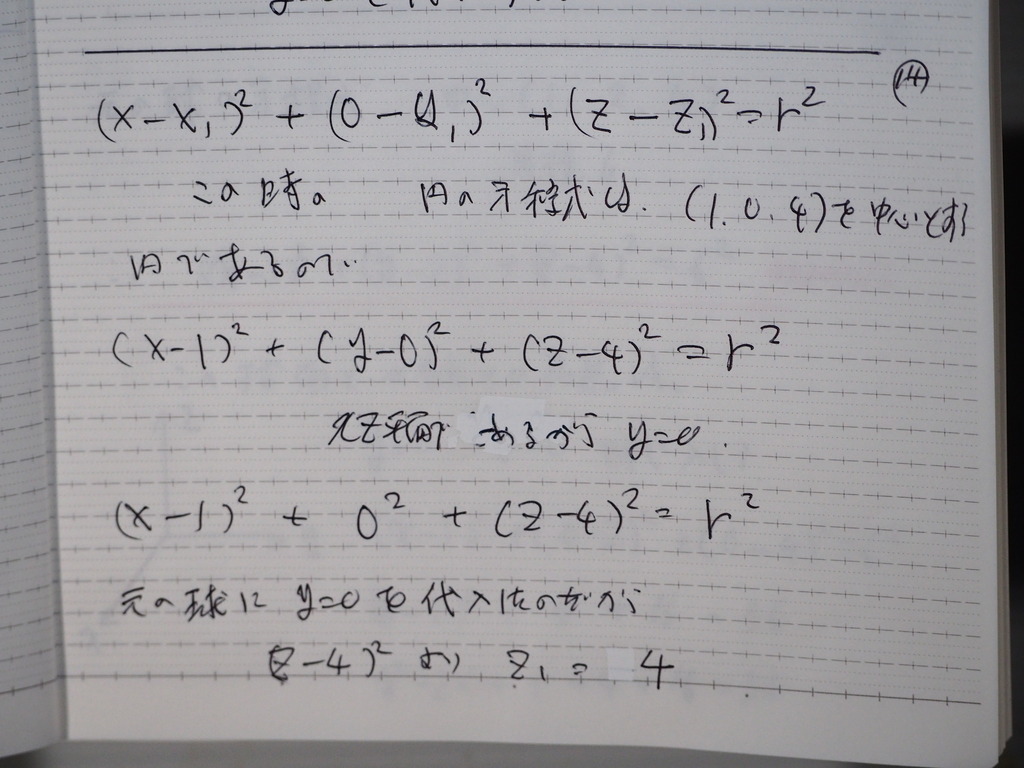 ⑭
(x-x₁)² + (0-y₁)² + (z-z₁)² = r²
この時の 円の方程式は. (1.0.4)を中心とする
円であるので..
(x-1)² + (y-0)² + (z-4)² = r²
xz平面であるから y=0.
(x-1)² + 0² + (z-4)² = r²
元の球に y=0を代入したのだから
(z-4)² より z₁ = 4